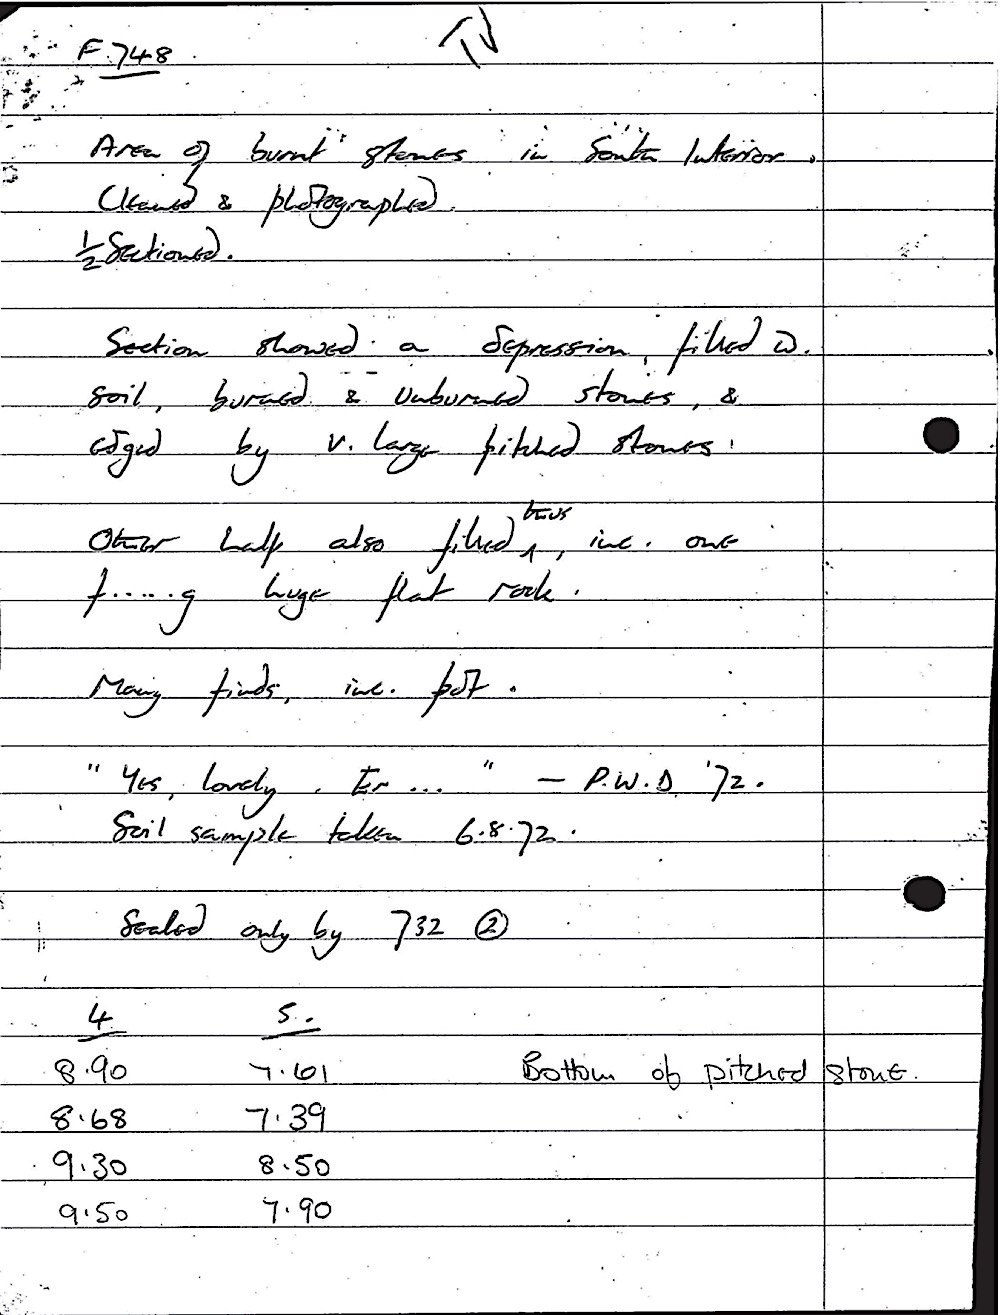 F.748
Area of burnt stones in South Interior.
Cleaned & photographed.
½ Sectioned.
Section showed a depression, filled w.
soil, burned & unburned stones, &
edged by v. large pitched stones.
Other half also filled thus, inc. one
f.....g huge flat rock.
Many finds, inc. pot.
"Yes, lovely. Er..." — P.W.D '72.
Soil sample taken 6.8.72.
Sealed only by 732 ②
4 5.
8.90 7.61 Bottom of pitched stone.
8.68 7.39
9.30 8.50
9.50 7.90